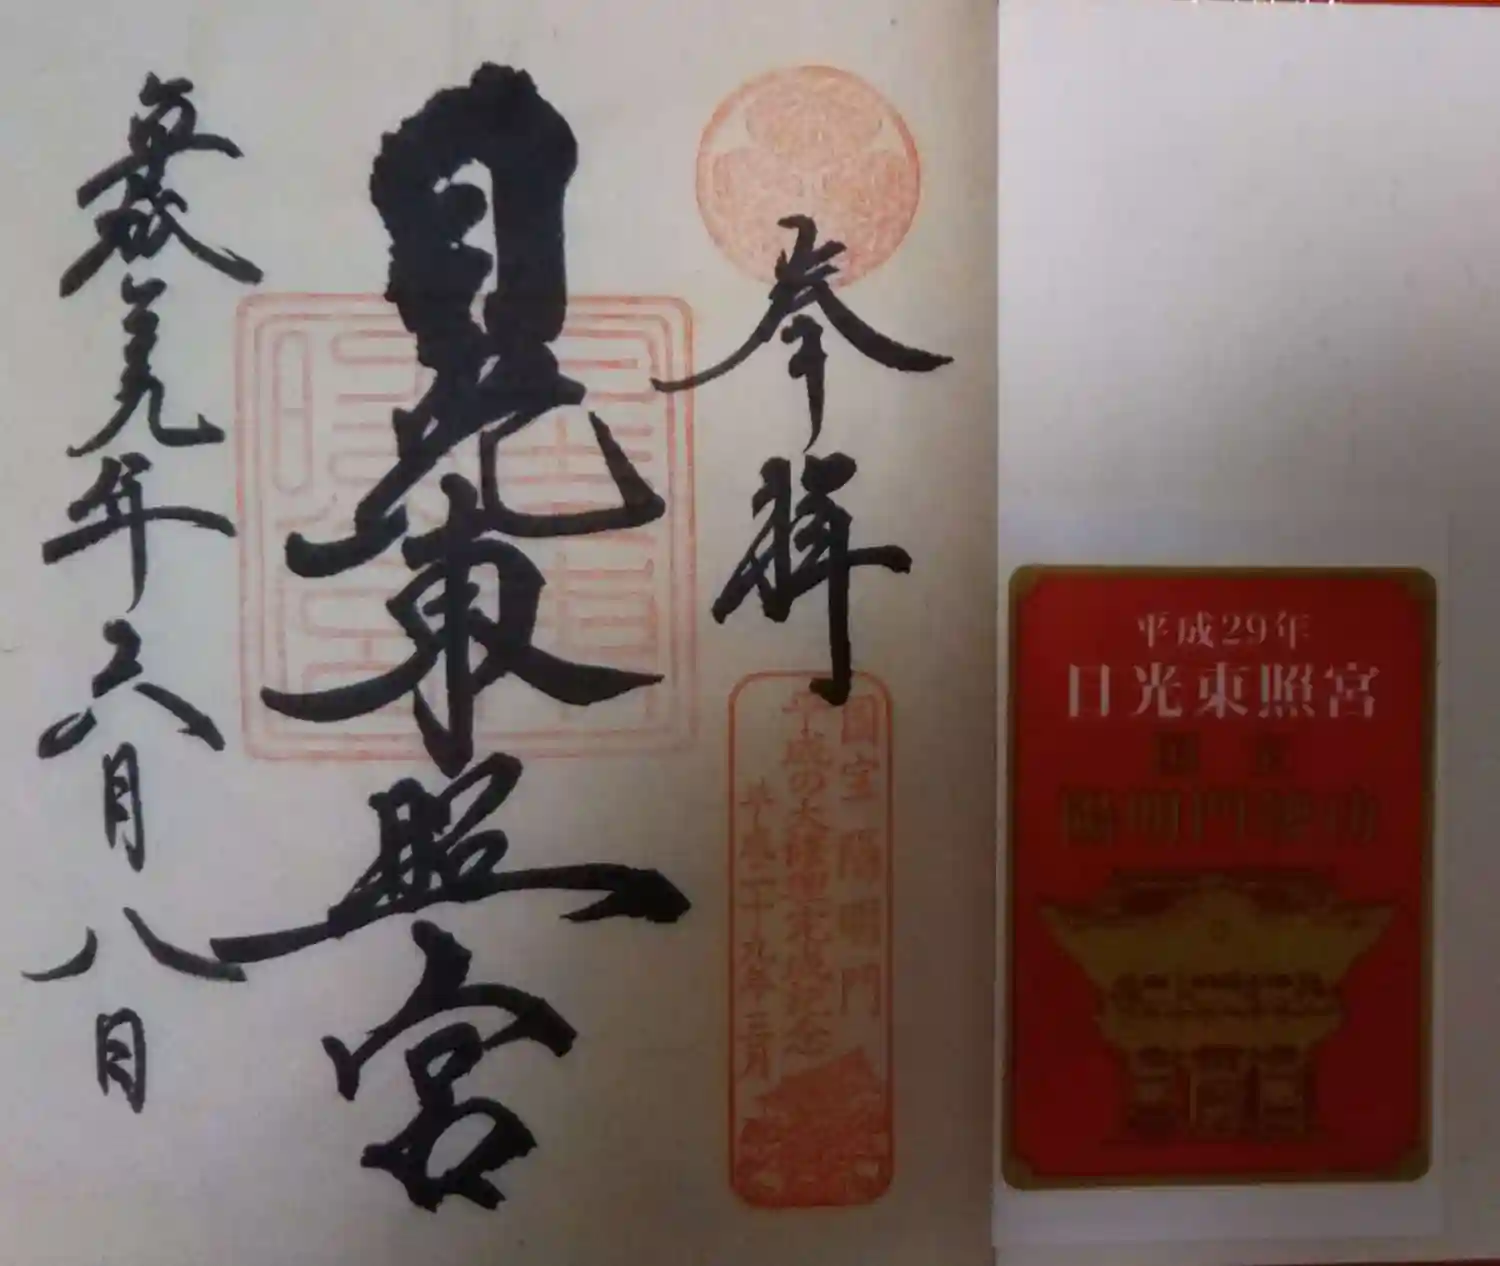 奉拝
国宝 陽明門
平成の大修理完成記念
平成二十九年三月
日光東照宮
九年六月八日
平成29年
日光東照宮
国宝
陽明門竣功